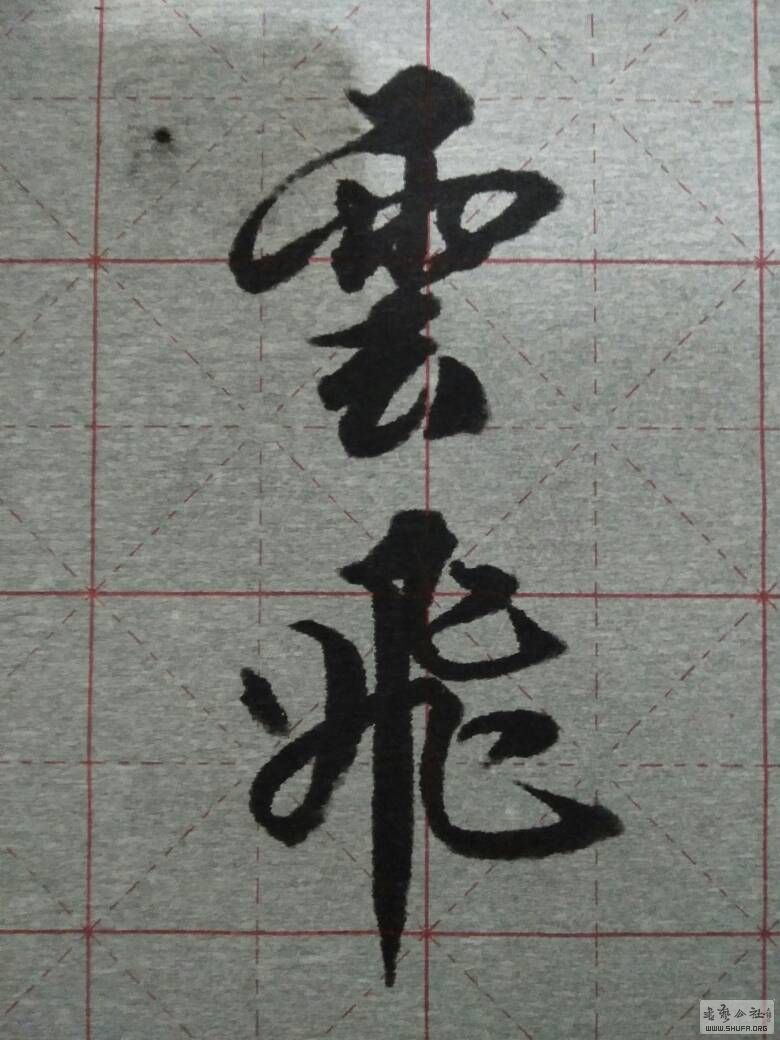 雲飛
書藝公社
WWW.SHUFA.ORG